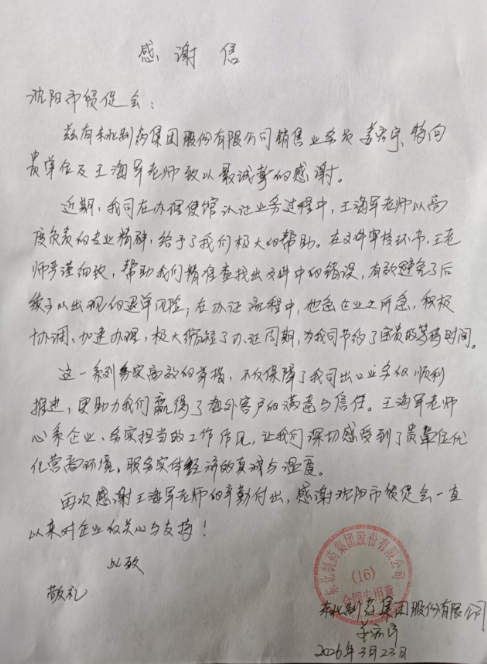 感谢信
沈阳市贸促会:
兹有东北制药集团股份有限公司销售业务员 姜宗宇,特向
贵单位及王海军老师致以最诚挚的感谢。
近期,我司在办理使馆认证业务过程中,王海军老师以高
度负责的专业精神,给予了我们极大的帮助。在文件审核环节,王老
师严谨细致,帮助我们精准查找出文件中的错误,有效避免了后
续可以出现的退单风险;在办证流程中,他急企业之所急,积极
协调、加速办理,极大缩短了办证周期,为我司节约了宝贵的等待时间。
这一系列务实高效的举措,不仅保障了我司出口业务的顺利
推进,更助力我们赢得了海外客户的满意与信任。王海军老师
心系企业、务实担当的工作作风,让我们深切感受到了贵单位优
化营商环境、服务实体经济的真诚与温度。
再次感谢王海军老师的辛勤付出,感谢沈阳市贸促会一直
以来对企业的关心与支持!
此致
敬礼
东北制药集团股份有限公司
(16)
合同专用章
东北制药集团股份有限公司
2026年3月23日